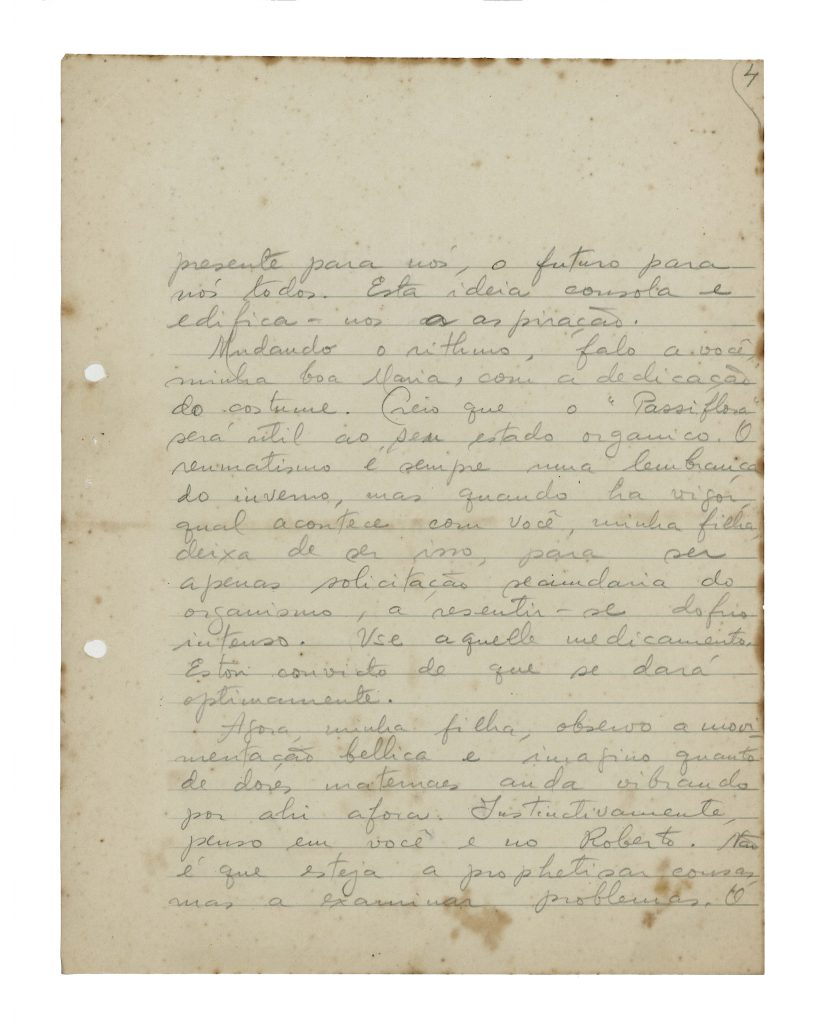 4
presente para nós, o futuro para
nós todos. Esta ideia consola e
edifica-nos a aspiração.
Mudando o rithmo, falo a você,
minha boa Maria, com a dedicação
do costume. Creio que o "Passiflora"
será util ao seu estado organico. O
reumatismo é sempre uma lembrança
do inverno, mas quando ha vigor,
qual acontece com você, minha filha,
deixa de ser isso, para ser
apenas solicitação secundaria do
organismo, a resentir-se do frio
intenso. Use aquelle medicamento.
Estou convicto de que se dará
optimamente.
Agora, minha filha, observo a movi-
mentação bellica e imagino quanto
de dores maternaes anda vibrando
por ahi afora. Instinctivamente,
penso em você e no Roberto. Não
é que esteja a prophetisar cousas,
mas a examinar problemas. O